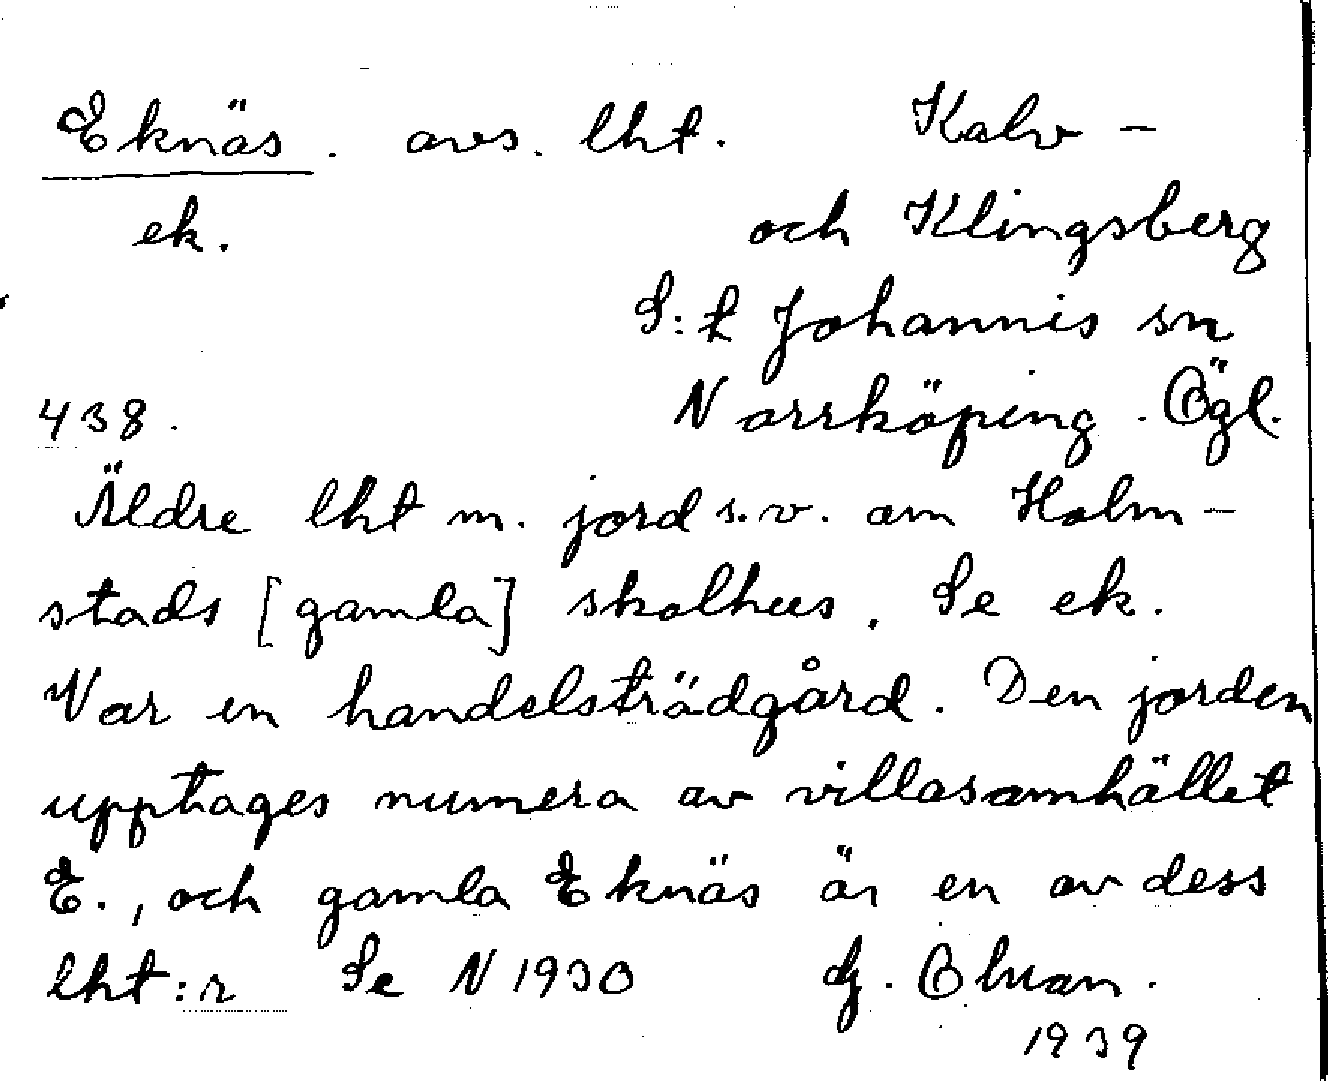 Eknäs. avs. lht. Kalv-
ek. och Klingsberg
S:t Johannis sn
438. Norrköping. Ögl.
Äldre lht m. jord s.v. om Holm-
stads [gamla] skolhus. Se ek.
Var en handelsträdgård. Den jorden
upptages numera av villasamhället
E., och gamla Eknäs är en av dess
lht:r Se N 1930 G.
1939